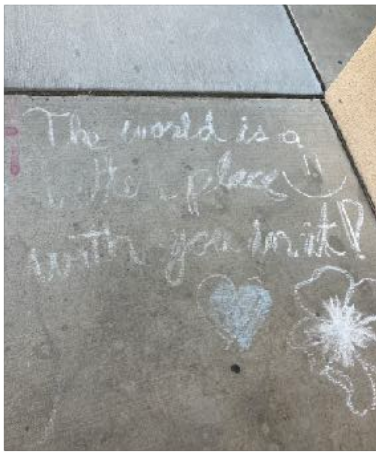 The world is a
better place
with you in it!